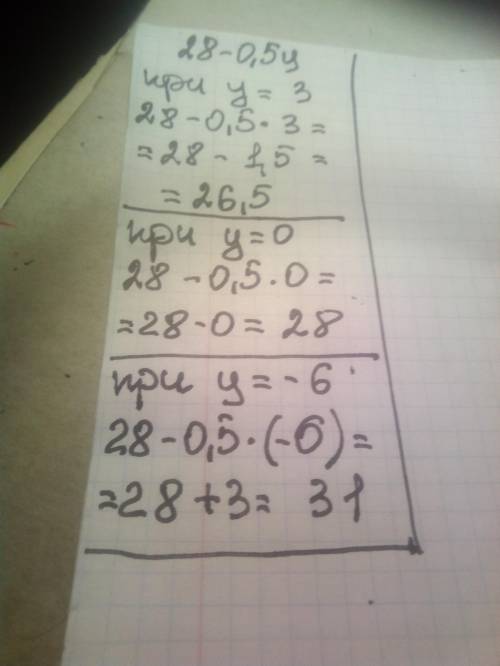 28-0,5y
при y = 3
28-0,5·3=
=28-1,5=
=26,5
при y=0
28-0,5·0=
=28-0=28
при y=-6
28-0,5·(-6)=
=28+3= 31